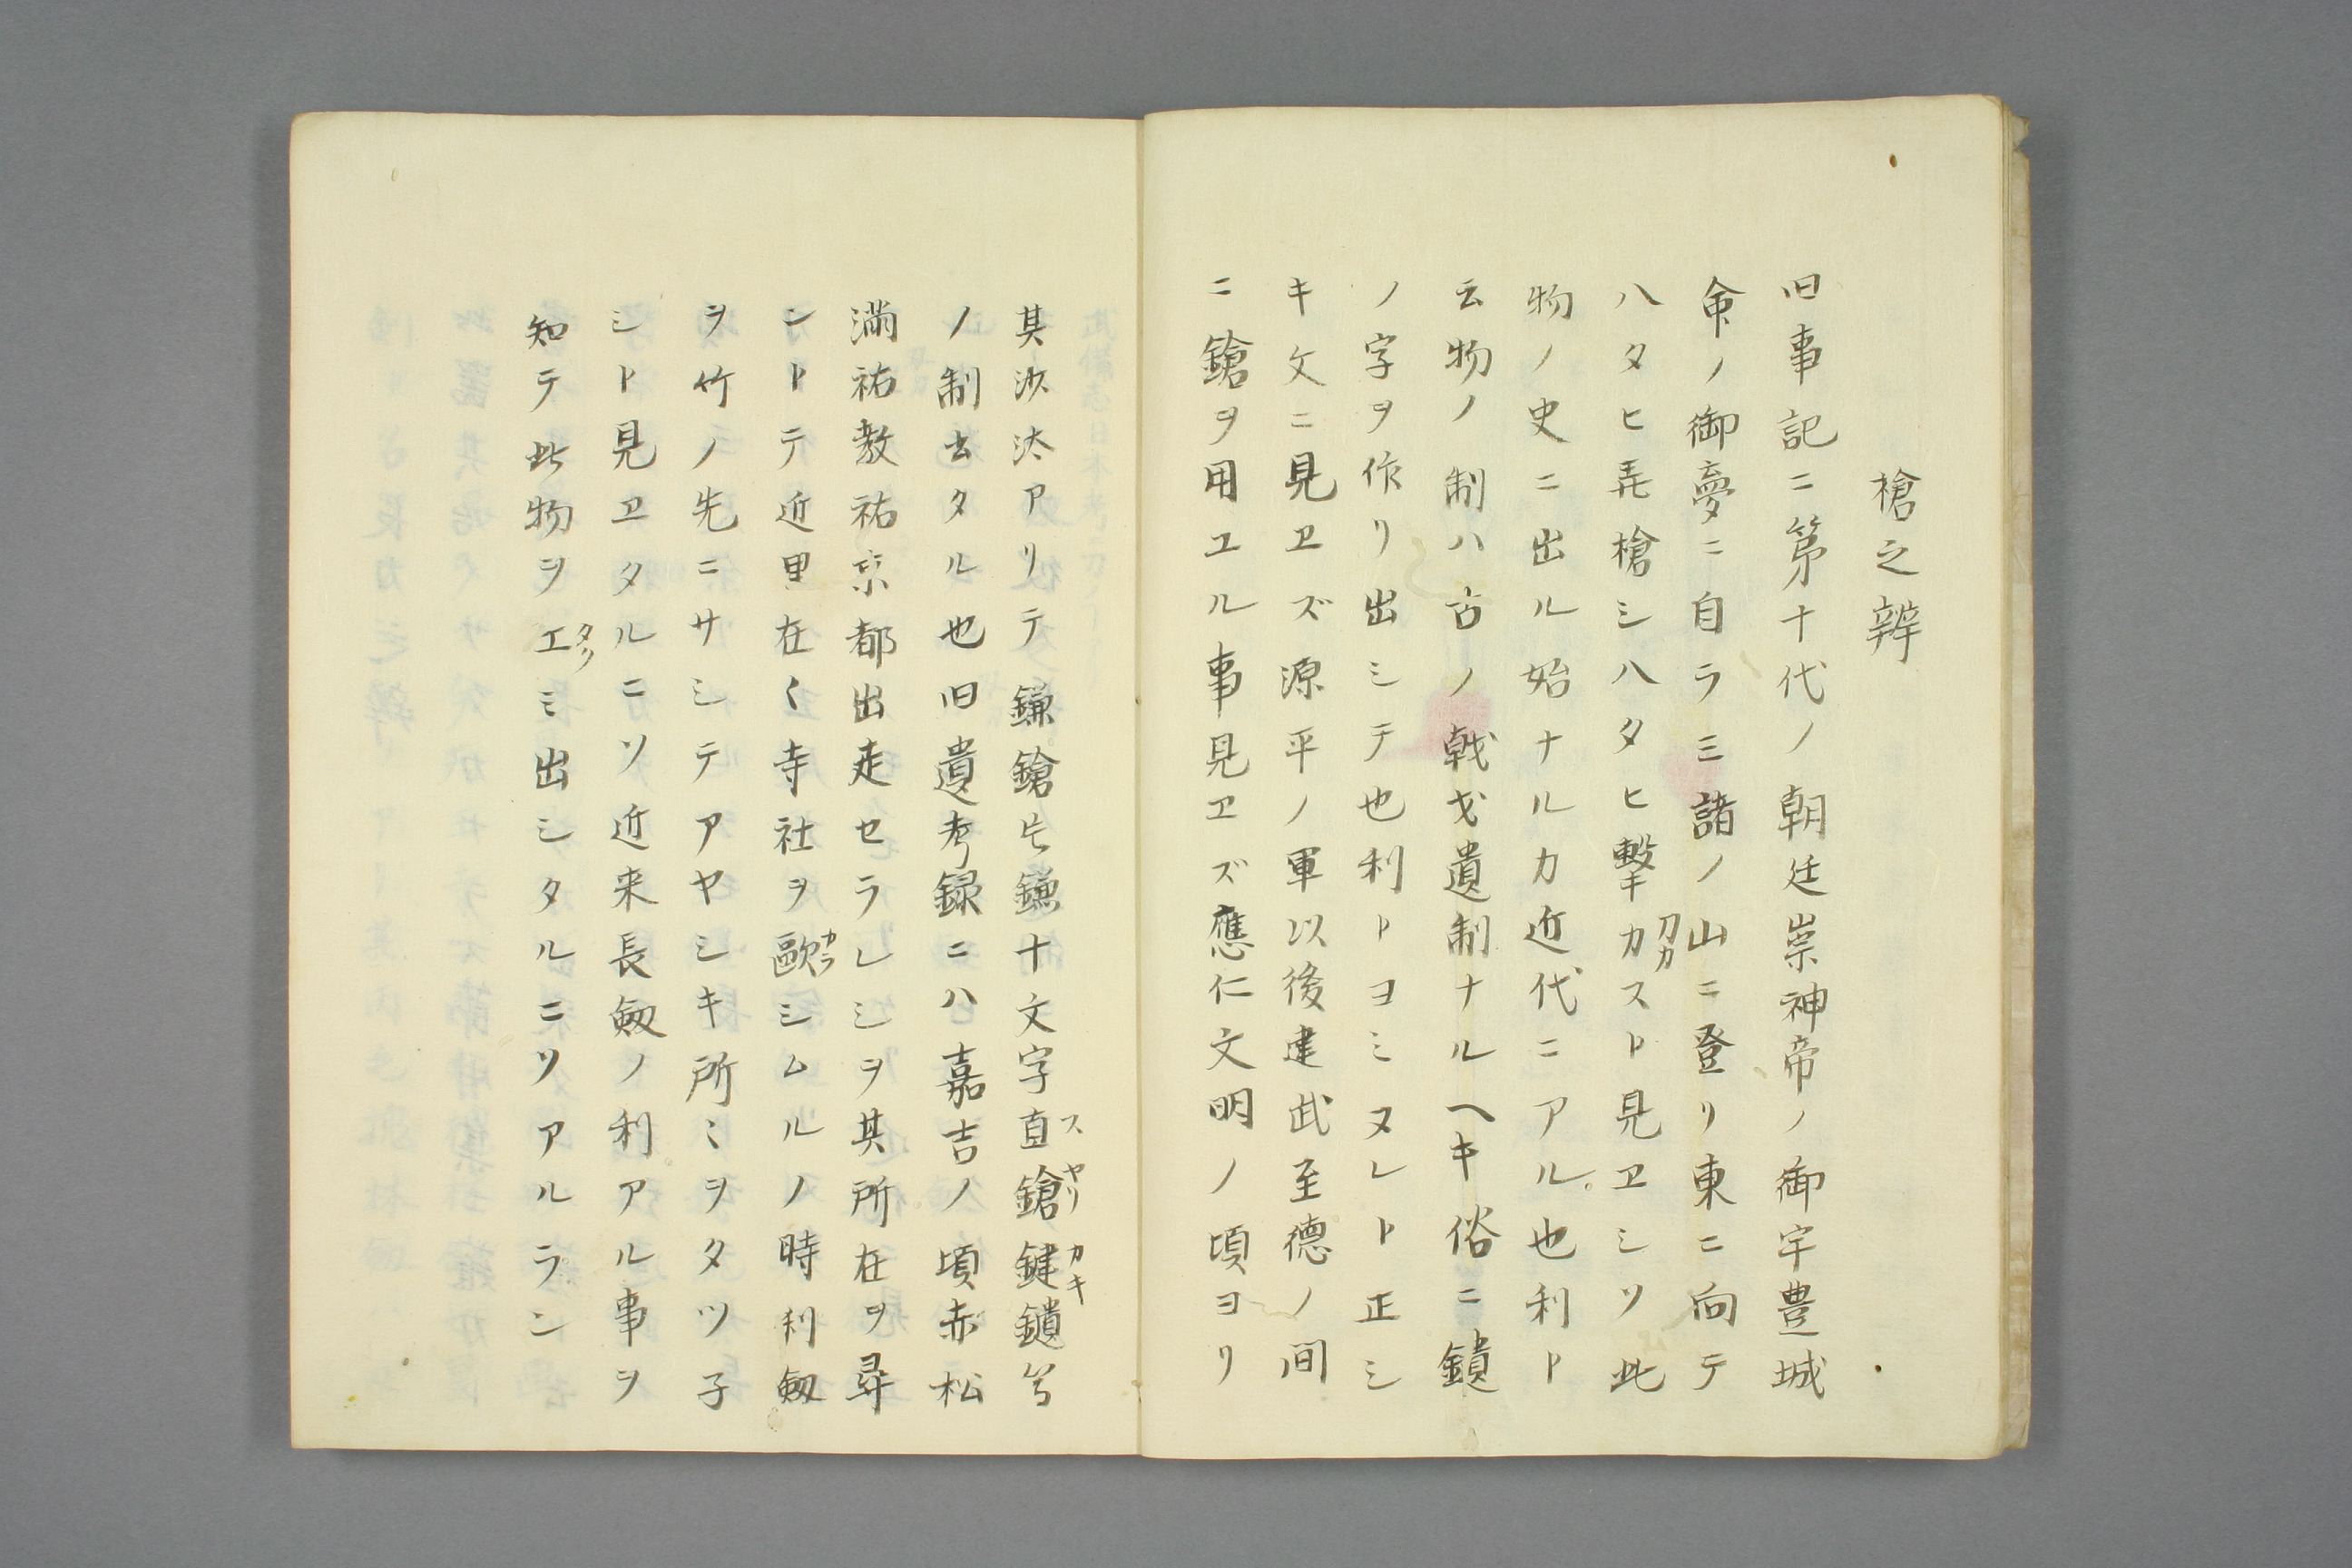 槍之辨
旧事記ニ第十代ノ朝廷崇神帝ノ御宇豊城
命ノ御夢ニ自ラ三諸ノ山ニ登リ東ニ向テ
八タヒ弄槍シ八タヒ撃刀カカスト見ヱシソ此
物ノ史ニ出ル始ナルカ近代ニアル也利ト
云物ノ制ハ古ノ戟戈遺制ナルヘキ俗ニ鑓
ノ字ヲ作リ出シテ也利トヨミヌレト正シ
キ文ニ見ヱズ源平ノ軍以後建武至德ノ間
ニ鎗ヲ用エル事見ヱズ應仁文明ノ頃ヨリ
其沙汰アリテ鎌鎗片鎌十文字直ス鎗ヤリ鍵カキ鑓等
ノ制出タル也旧遺考録ニハ嘉吉ノ頃赤松
満祐教祐京都出走セラレシヲ其所在ヲ尋
ントテ近里在〻寺社ヲ歐カラシムルノ時利劔
ヲ竹ノ先ニサシテアヤシキ所〻ヲタツ子
シト見ヱタルニソ近来長劔ノ利アル事ヲ
知テ此物ヲエタクミ出シタルニソアルラン